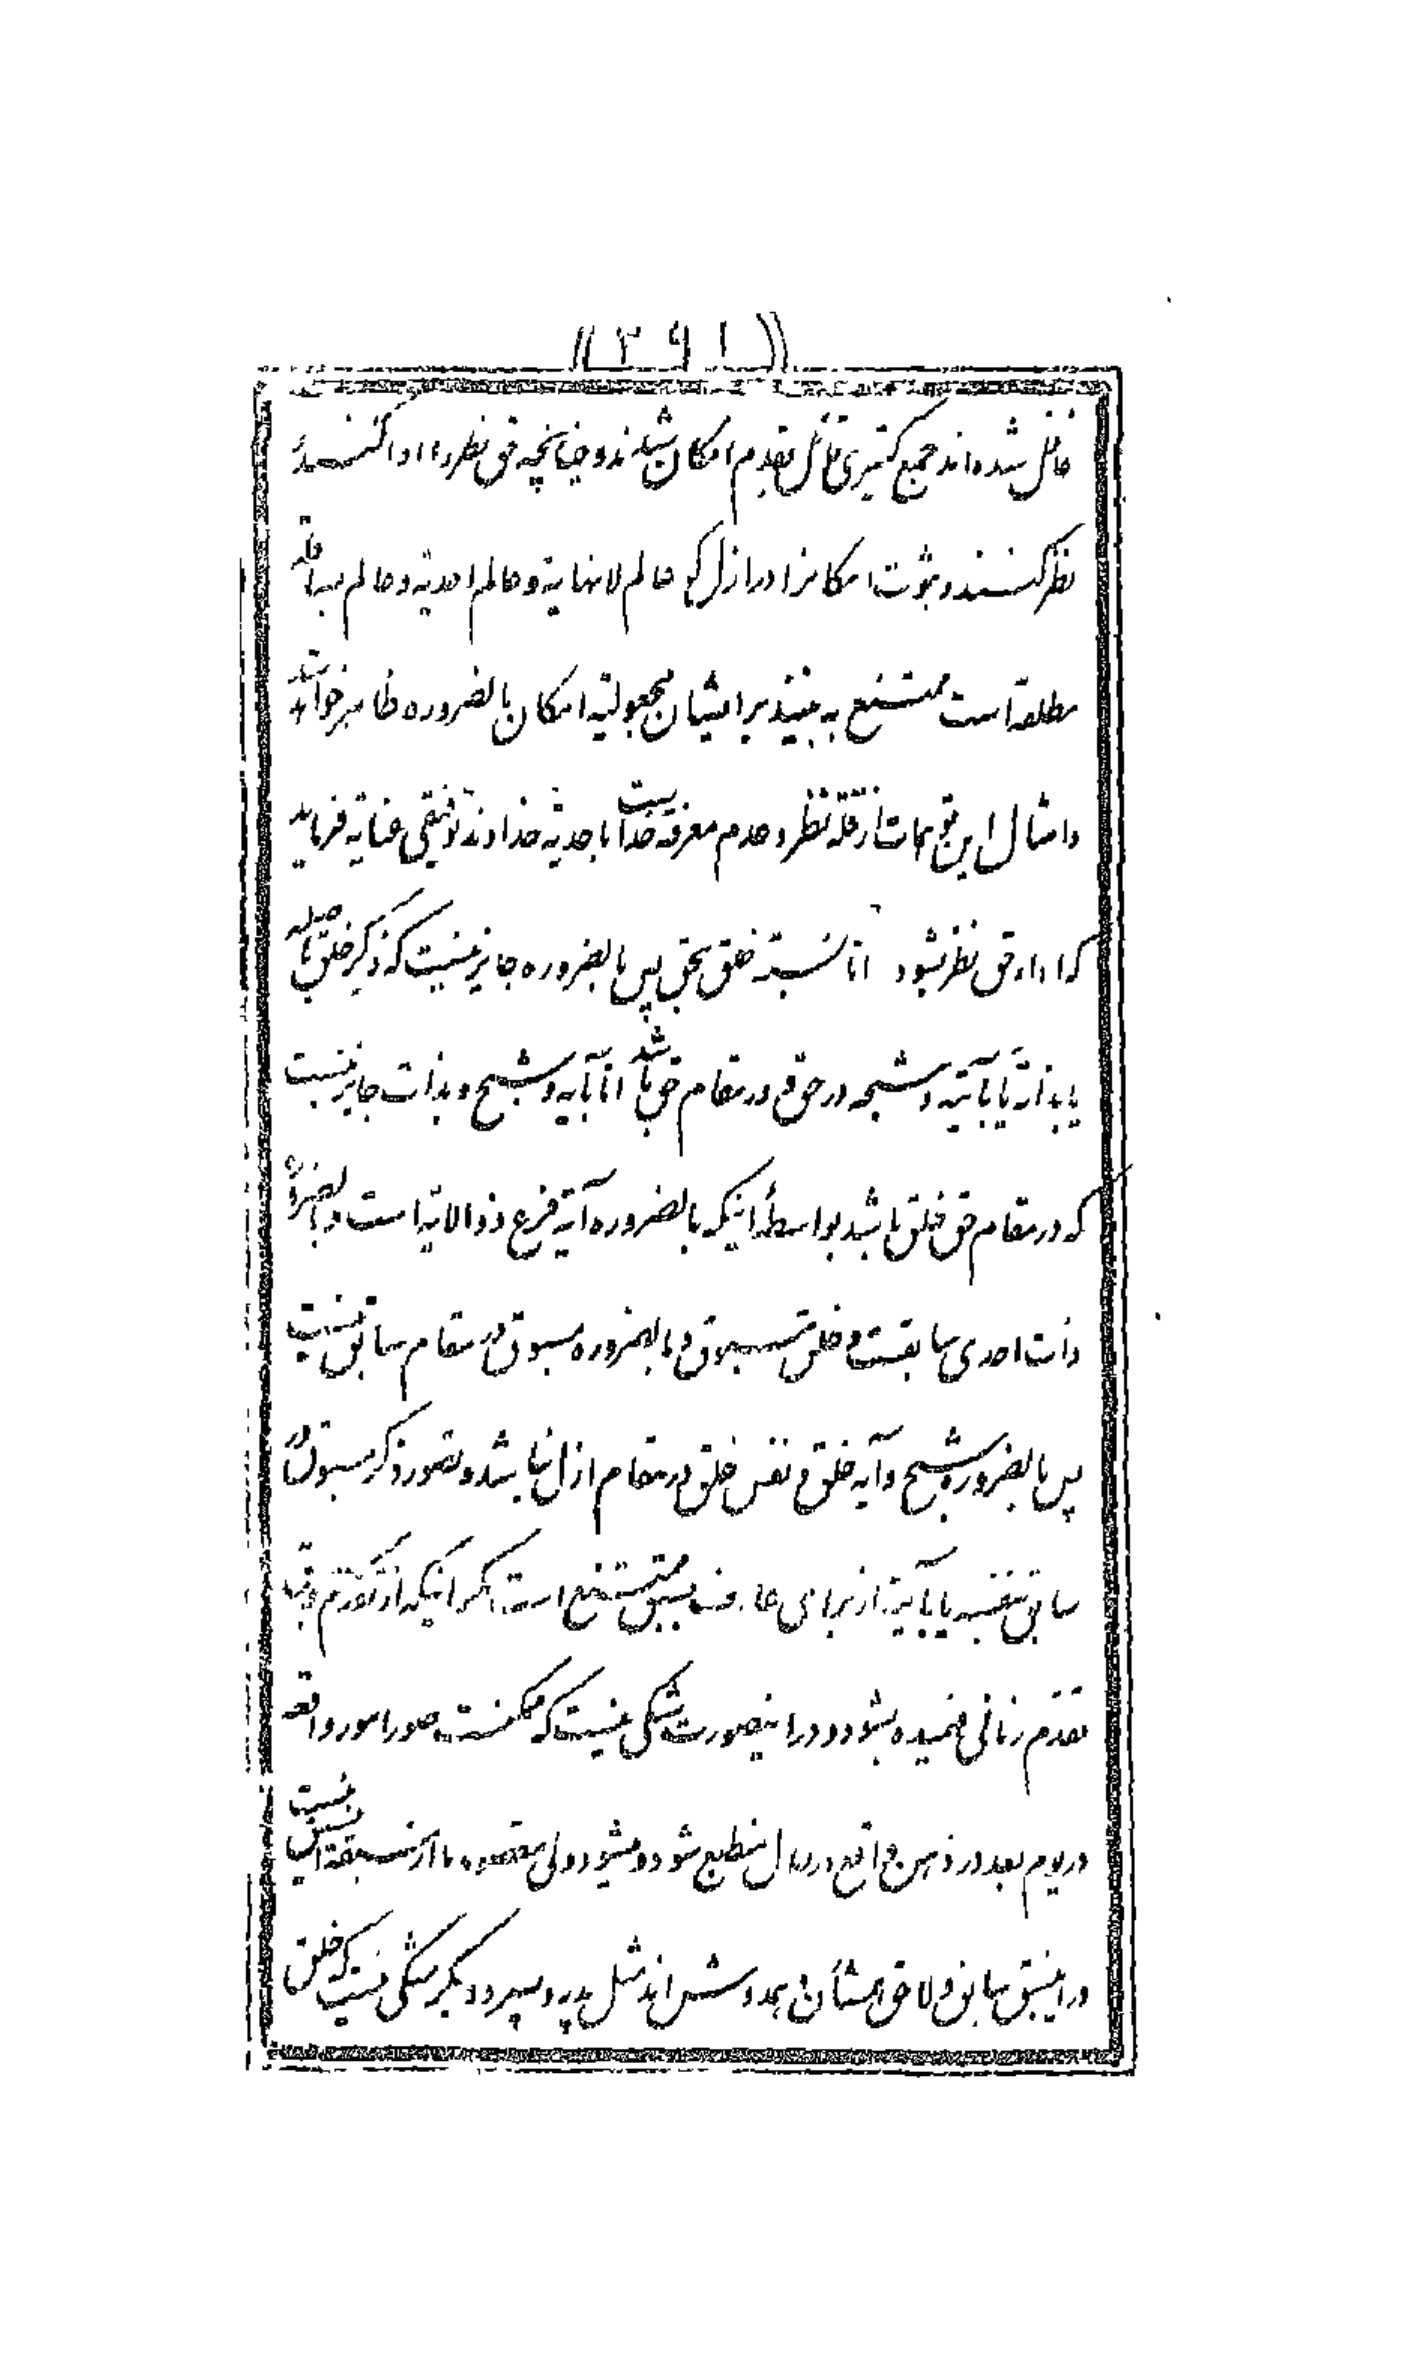 ((۳۹۱))
غافل شده‌اند جمع کثیری قائل بقدم امکان شده‌اند و چنانچه حق نظر را ادا کنند
نظر کنند و ثبوت امکانرا در ازل که عالم لانهایة و عالم احدیة و عالم بساطة
مطلقة است ممتنع به بینند برایشان مجعولیة امکان بالضروره ظاهر خواهد شد
و امثال این توهمات از قلة نظر و عدم معرفة خدا است باحدیة خداوند توفیقی عنایة فرماید
که اداء حق نظر بشود اما نسبة خلق بحق پس بالضروره جایز نیست که ذکر خلق باصله
یا بذاته یا بآیته و شبحه در حق و در مقام حق باشد اما بآیه و شبح و بذات جایز نیست
که در مقام حق خلق باشد بواسطهٔ اینکه بالضروره آیة فرع ذوالایة است و بالضروره
ذات احدی سابقست و خلق مسبوق و بالضروره مسبوق در مقام سابق نیست
پس بالضروره شبح و آیه خلق و نفس خلق در مقام ازل نباشد و تصور ذکر مسبوق در
سابق بنفسه یا بآیته از برای عارف بسبق ممتنع است مگر اینکه از تقدم
تقدم زمانی فهمیده بشود و در اینصورت شکی نیست که ممکنست صور امور واقعه
در یوم بعد در ذهن واقع در حال منطبع شود و میشود ولی مقصود ما از سبقة این سبق نیست
در این سبق سابق و لاحق همشأن و همدوش اند مثل پدر و پسر و دیگر شکی نیست که خلق